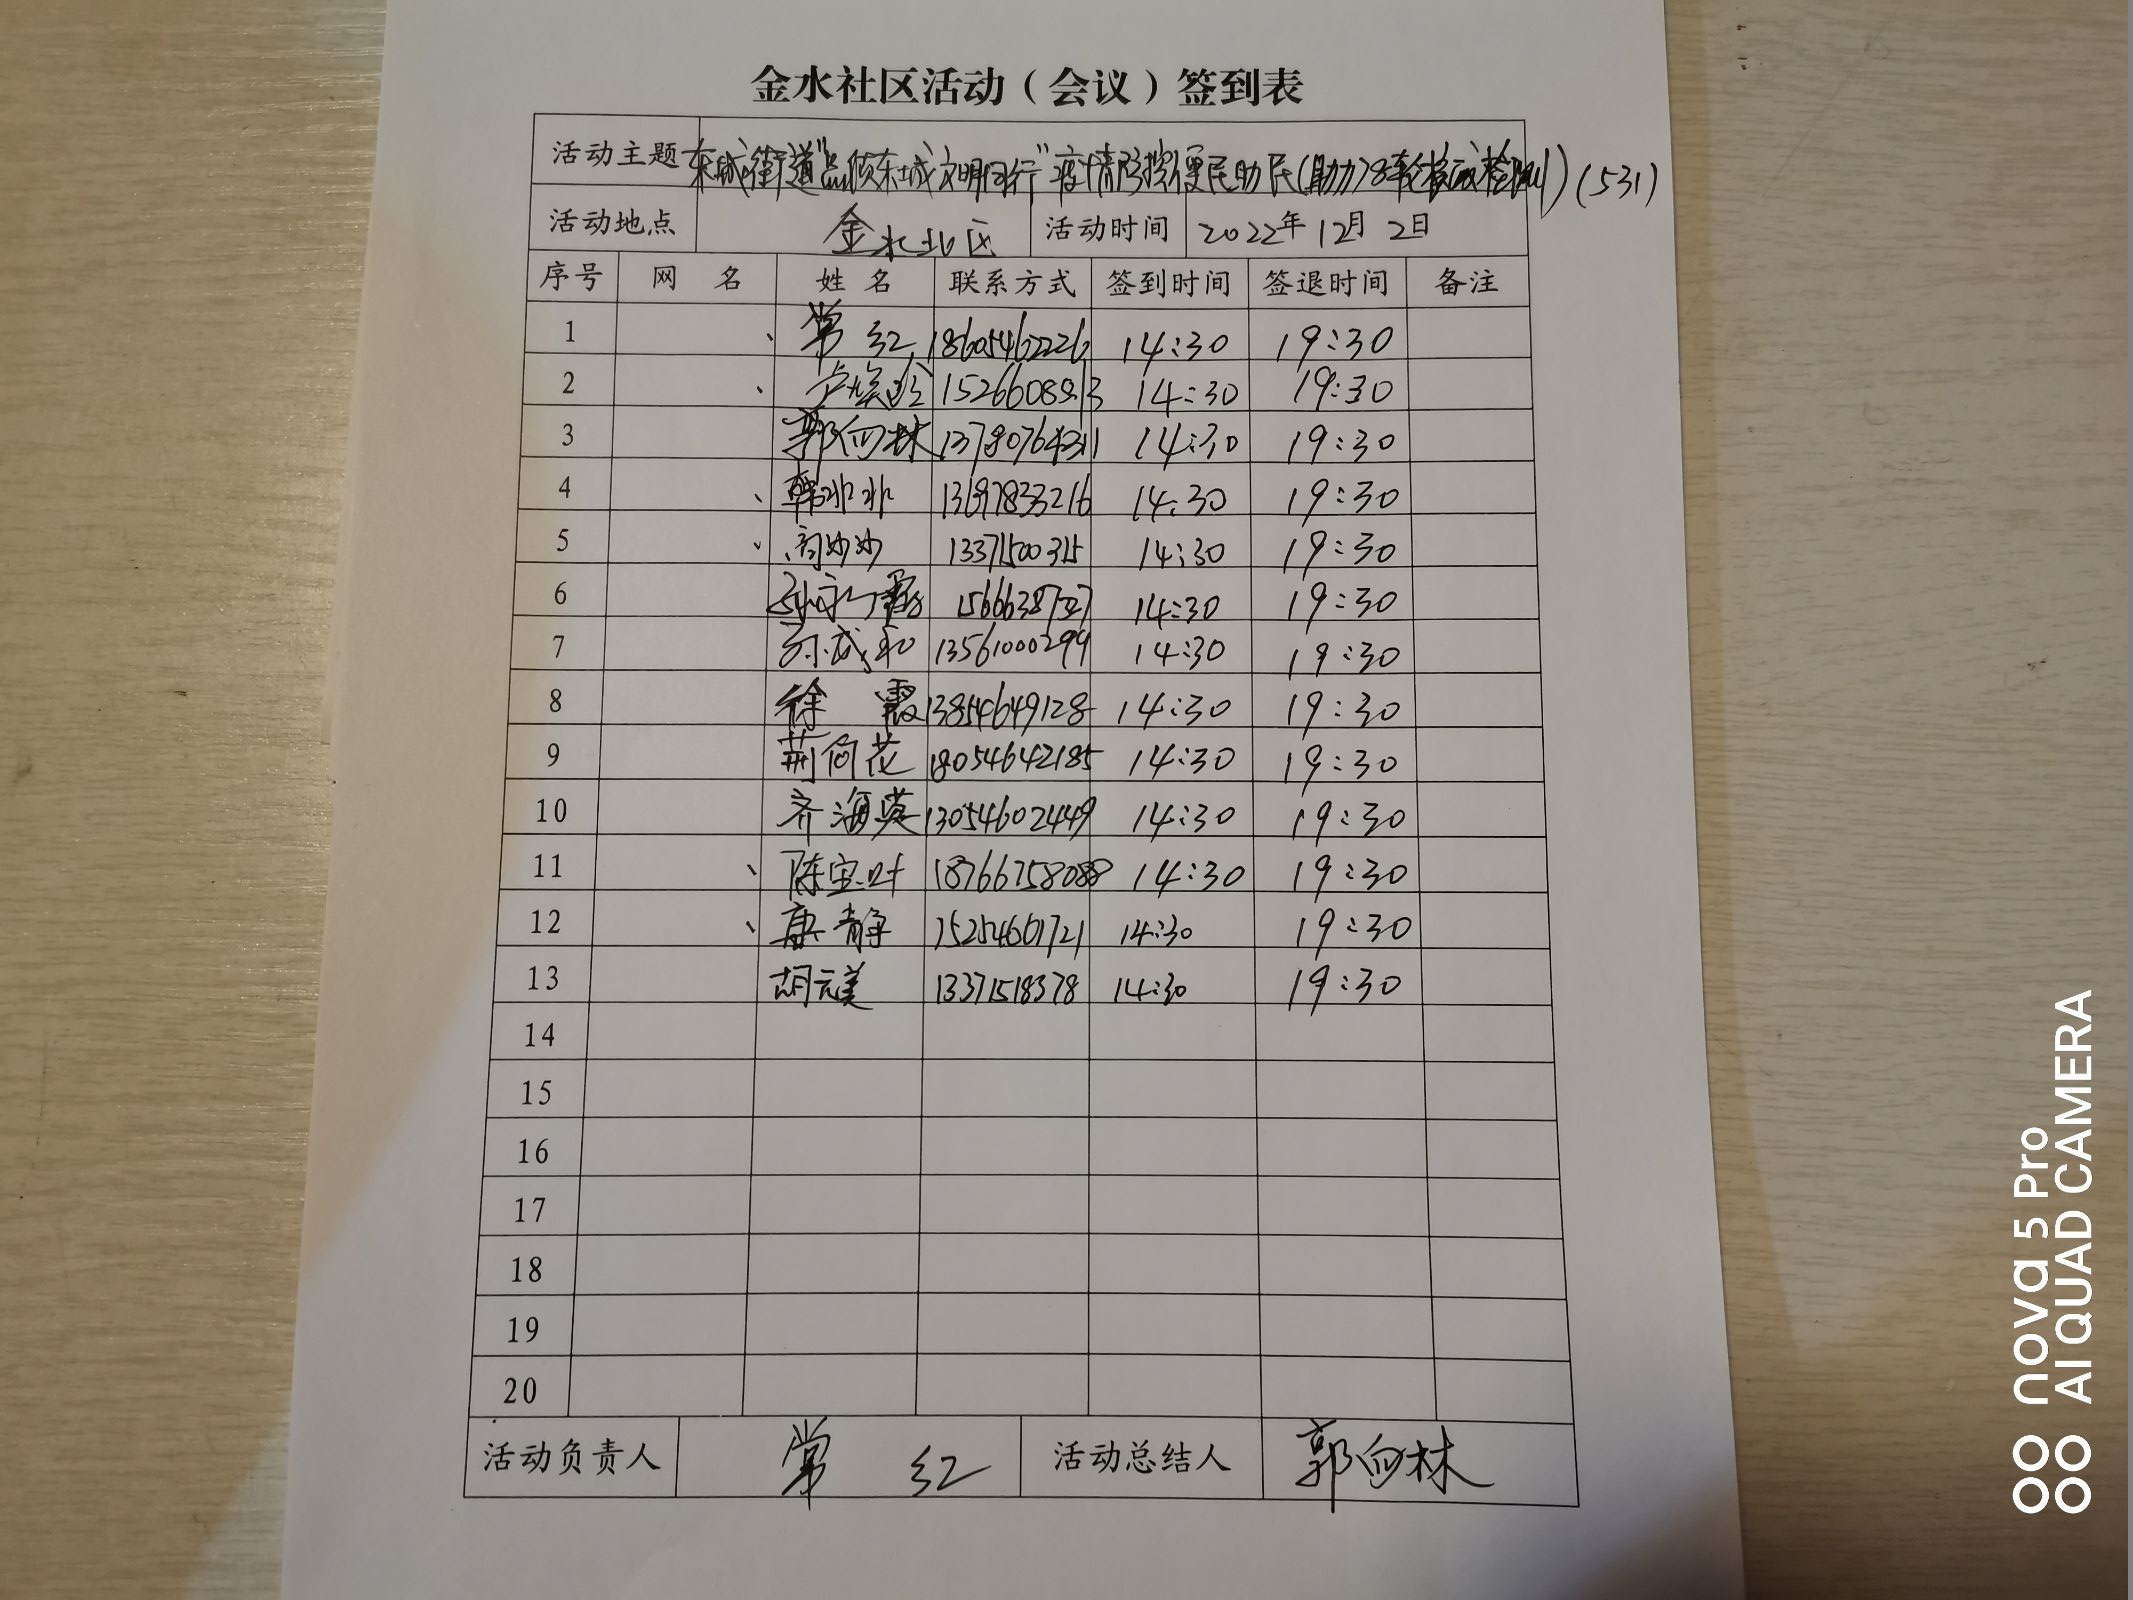 金水社区活动（会议）签到表
活动主题 东城街道"点倾东城文明同行"疫情防控便民助民(助力28轮核酸检测)(531)
活动地点 金水北区 活动时间 2022年12月2日
序号 网 名 姓 名 联系方式 签到时间 签退时间 备注
1 常红 18605462226 14:30 19:30
2 14:30 19:30
3 郭向林 14:30 19:30
4 韩北北 13697833216 14:30 19:30
5 高沙沙 13371500315 14:30 19:30
6 14:30 19:30
7 13561000299 14:30 19:30
8 徐霞 13854649128 14:30 19:30
9 荆荷花 18054642185 14:30 19:30
10 齐海英 13054602449 14:30 19:30
11 陈宝叶 18766758088 14:30 19:30
12 唐静 15254601721 14:30 19:30
13 胡元美 13371518378 14:30 19:30
14
15
16
17
18
19
20
活动负责人 常红 活动总结人 郭向林
nova 5 Pro
AI QUAD CAMERA